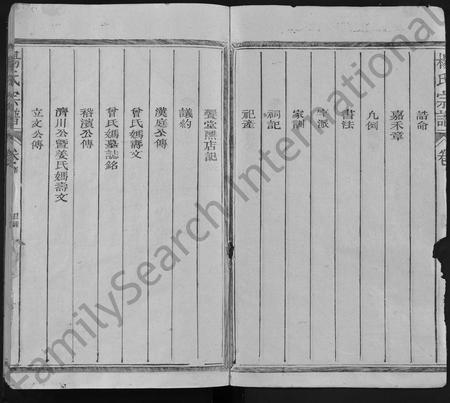 楊氏宗譜
卷
誥命
嘉禾章
凡例
書法
字派
家訓
祠記
祀產
議約
漢庭公傳
曾氏媽壽文
曾氏媽墓誌銘
裕濱公傳
濟川公暨姜氏媽壽文
立文公傳
楊氏宗譜
卷
目錄
FamilySearch International